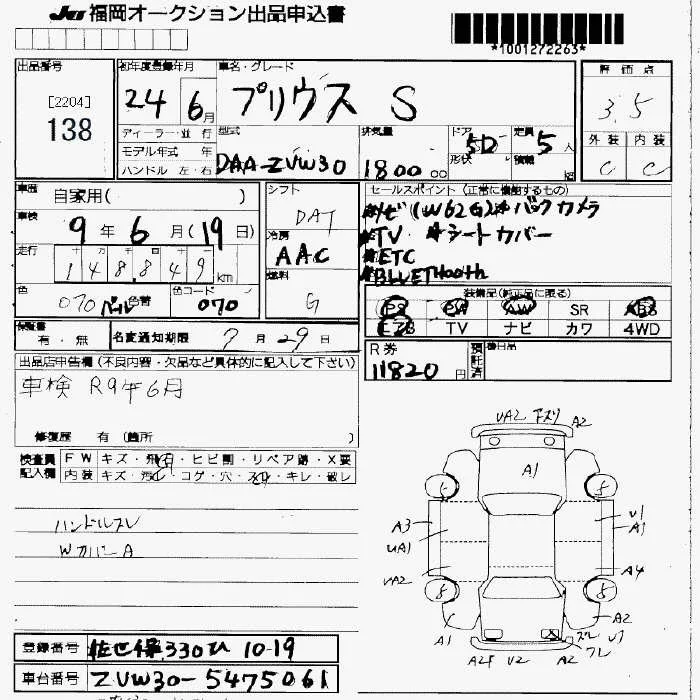 JU 福岡オークション出品申込書
*1001272263*
出品番号
[2204]
138
初年度登録年月
24 6月
車名・グレード
プリウス S
評価点
3.5
外装 内装
C C
ディーラー・並行
モデル年式 年
ハンドル 左・右
型式
DAA-ZVW30
排気量
1800 cc
ドア 形状
5D
定員 5人
積載 kg
車歴 自家用( )
車検 9年6月(19日)
走行 148,849 km
色 070 パール 色替
色コード 070
シフト DAT
冷房 AAC
燃料 G
セールスポイント(正常に機能するもの)
#ナビ(W62G)#バックカメラ
#TV #シートカバー
#ETC
#BLUETHooth
装備品(純正品に限る)
PS PW AW SR ABS
エアB TV ナビ カワ 4WD
保証書 有・無
名変通知期限 7月29日
R券 11820円
預託済
出品店申告欄(不良内容・欠品など具体的に記入して下さい)
車検 R9年6月
修復歴 有(箇所 )
検査員記入欄
FW キズ・飛石・ヒビ割・リペア跡・X要
内装 キズ・汚レ・コゲ・穴・スレ・キレ・破レ
ハンドルスレ
WカバーA
UA2 下ズリ A2
A1
5 5
A3 U1 A1
UA1
UA2 A4
8 8
A1 A2
ズレ U1
ワレ
A2F U2 A2
登録番号 佐世保330ひ 10-19
車台番号 ZVW30-5475061